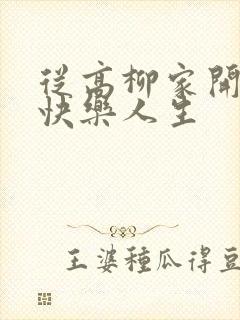 從高柳家開
快樂人生
王婆種瓜得豆